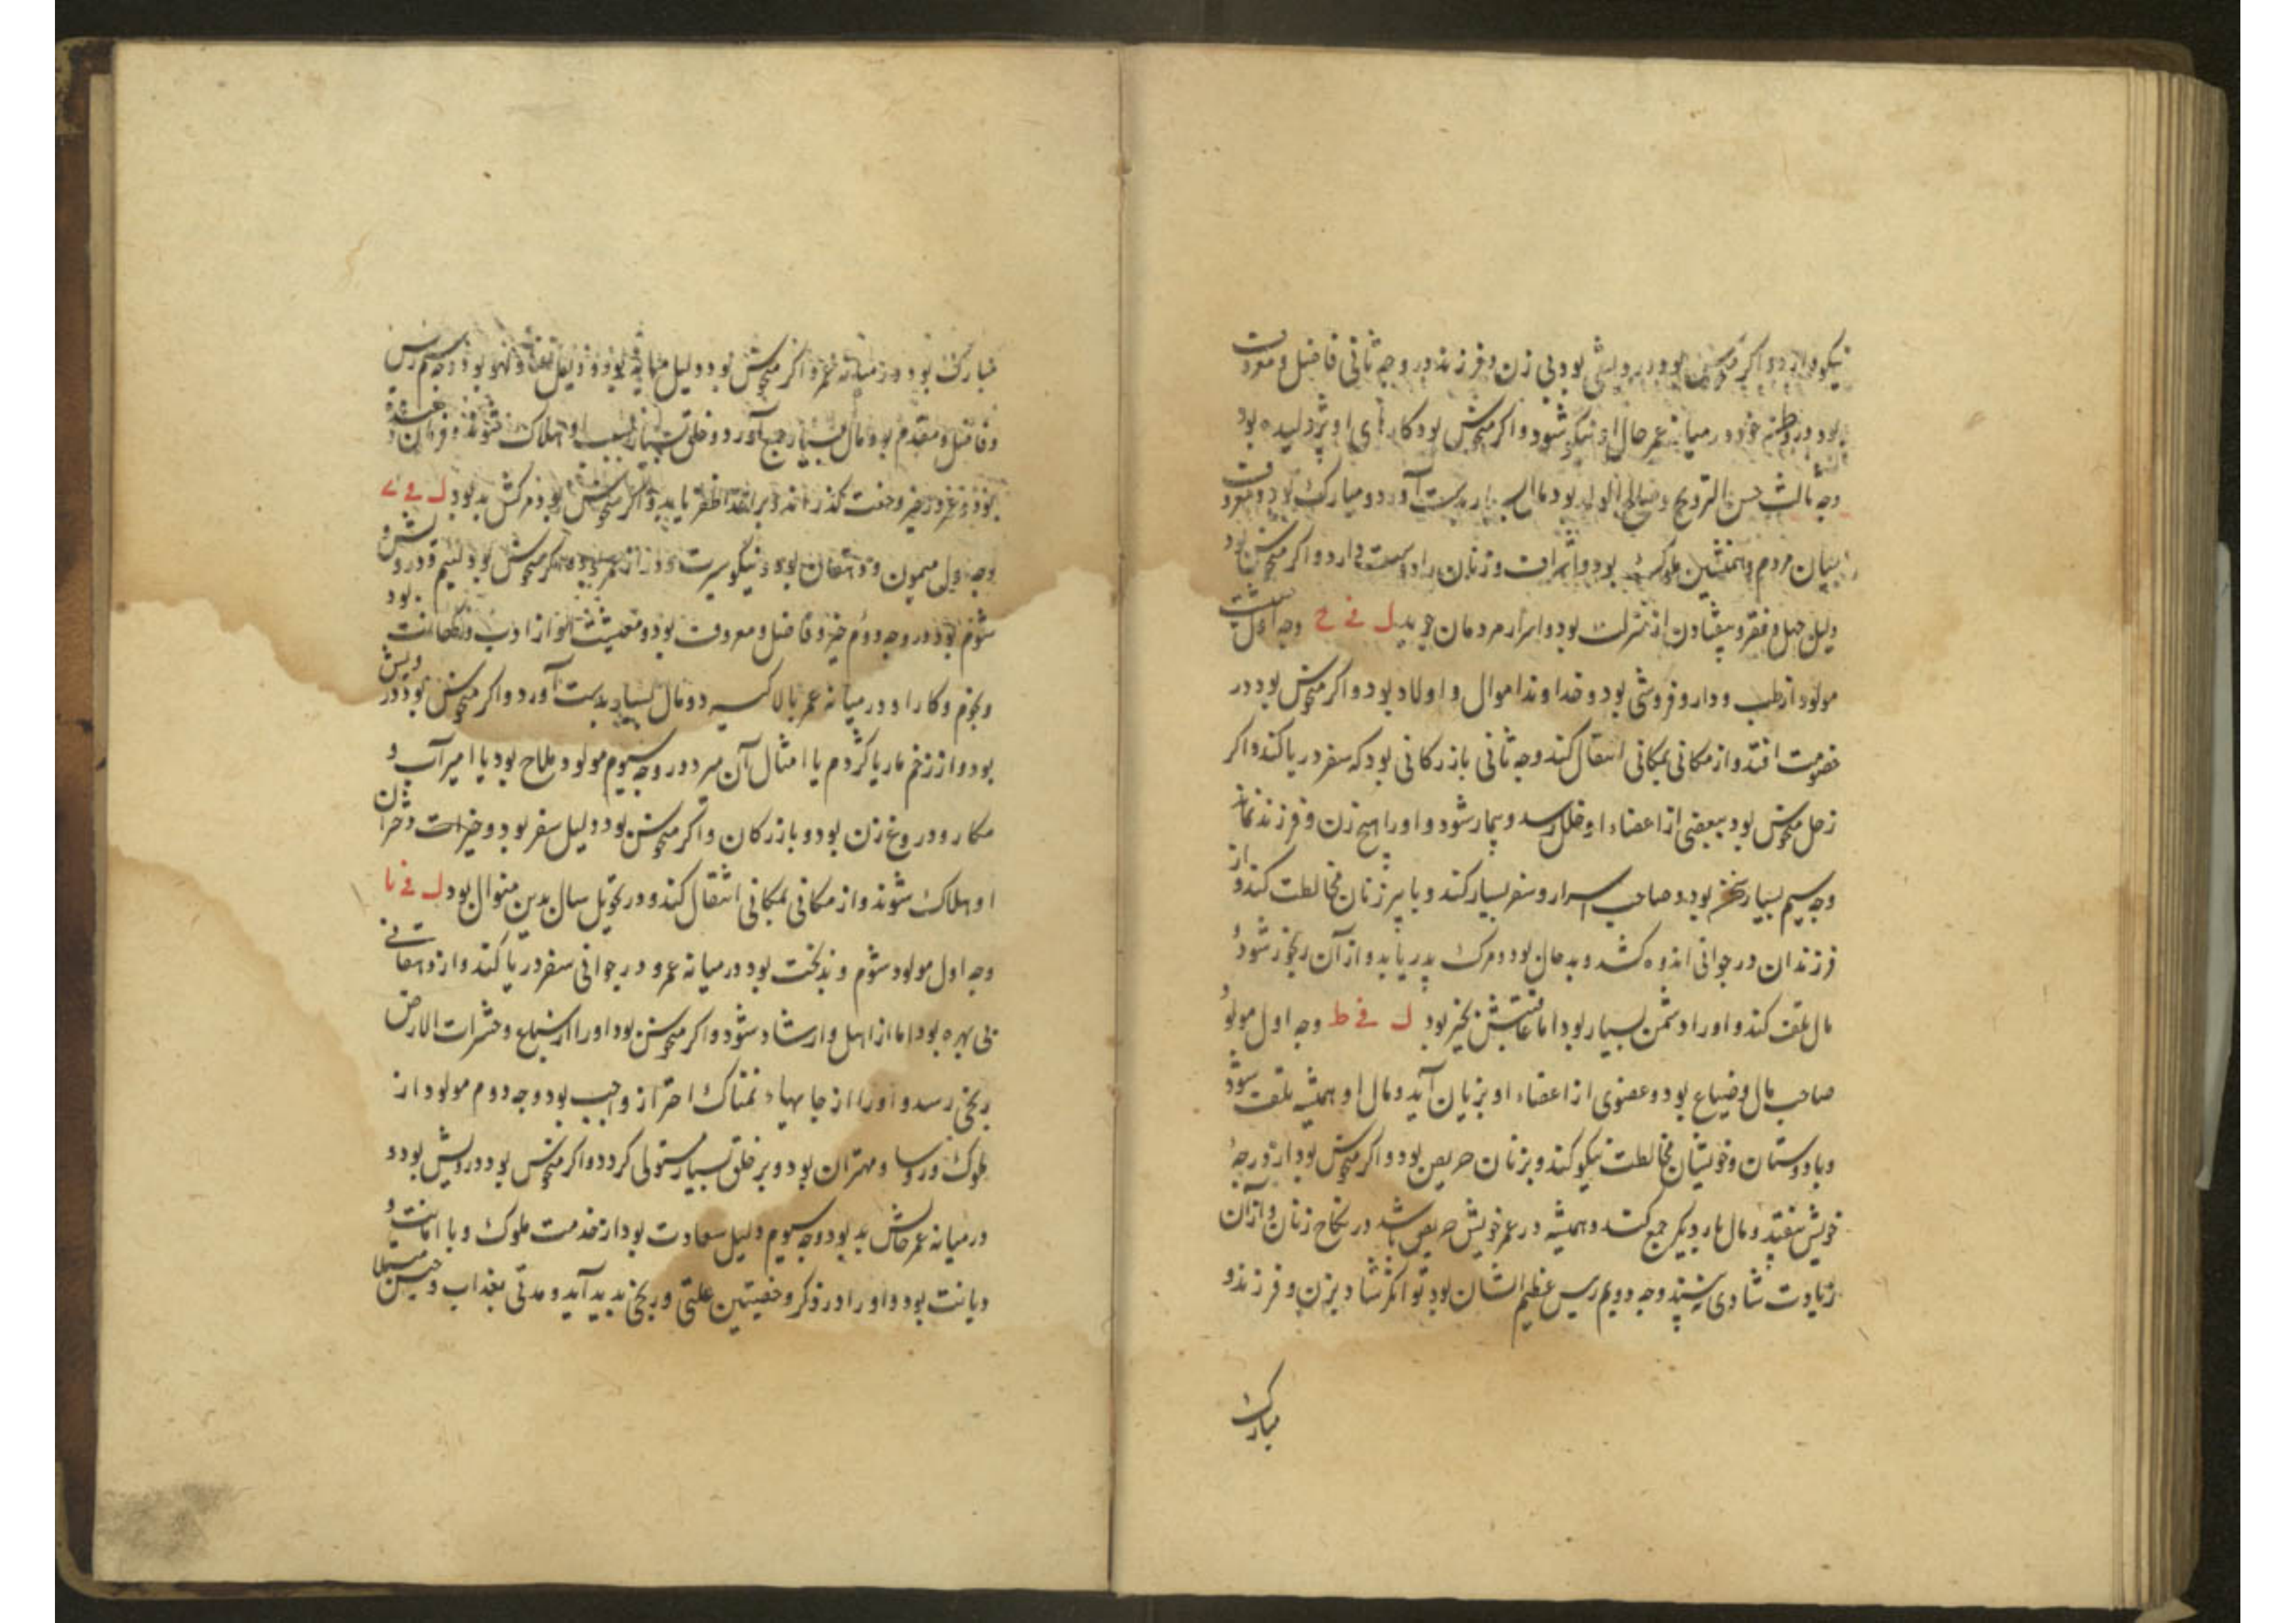 نیکو دارد و اگر منحوس بود درویشی بود بی زن و فرزند در وجه ثانی فاضل و معروف
بود و در وطن خود در میانه عمر حال او نیکو شود و اگر منحوس بود کارهای او پژولیده بود
وجه ثالث حسن التزویج و صالح الولد بود و مال بسیار بدست آورد و مبارک بود و معروف
بمیان مردم و همنشین ملوک بود و اشراف و زنان را دوست دارد و اگر منحوس بود
دلیل جهل و فقر و بیفتادن از منزلت بود و اسرار مردمان جوید ل فی ح وجه اول
مولود از طب و داروفروشی بود و خداوند اموال و اولاد بود و اگر منحوس بود در
خصومت افتد و از مکانی بمکانی انتقال کند وجه ثانی بازرکانی بود که سفر دریا کند و اگر
زحل منحوس بود ببعضی از اعضاء او خلل رسد و بیمار شود و او را هیچ زن و فرزند نماند
وجه سیم بسیار بود و صاحب اسرار و سفر بسیار کند و با پیر زنان مخالطت کند و از
فرزندان در جوانی اندوه کشد و بد حال بود و مرک پدر یابد و از آن رنجور شود و
مال تلف کند و او را دشمن بسیار بود اما عاقبتش بخیر بود ل فی ط وجه اول مولود
صاحب مال و ضیاع بود و عضوی از اعضاء او بزیان آید و مال او همیشه تلف شود
و با دوستان و خویشان مخالطت نیکو کند و بزنان حریص بود و اگر منحوس بود از درجهٔ
خویش بیفتد و مال بار دیگر جمع کند و همیشه در عمر خویش حریص باشد در نکاح زنان و از آن
زیادت شادی نبیند وجه دویم رییس عظیم الشان بود توانگر شاد بزن و فرزند و
مبارک
مبارک بود و در میانه عمر و اگر منحوس بود دلیل بود و وجه سیم رییس
و فاضل و مقدم بود و مال بسیار جمع آورد و خلق بسیار بسبب او هلاک شوند و فرزندان
بود و عمر در خیر و خفت گذراند و بر اعدا ظفر یابد و اگر منحوس بود مرکش بد بود ل فی ی
وجه اول میمون و دهقان بود و نیکو سیرت و دراز عمر بود و اگر منحوس بود لئیم و درویش و
شوم بود و در وجه دوم خیر و فاضل و معروف بود و معیشت او از ادب و بود
و نجوم و کار او در میانه عمر بالا کسیرد و مال بسیار بدست آورد و اگر منحوس بود درویش
بود و از زخم مار یا کژدم یا امثال آن میرد و در وجه سیوم مولود ملاح بود یا امیر آب و
مکار و دروغ زن بود و بازرکان و اگر منحوس بود دلیل سفر بود و حیرات و خران
او هلاک شوند و از مکانی بمکانی انتقال کند و در تحویل سال بدین منوال بود ل فی یا
وجه اول مولود شوم و بدبخت بود در میانه عمر و در جوانی سفر دریا کند و از دهقانی
بی بهره بود اما از اهل وارشاد شود و اگر منحوس بود او را از سباع و حشرات الارض
رنجی رسد و او را از جایهاء نمناک احتراز واجب بود وجه دوم مولود از
ملوک و روسا و مهتران بود و بر خلق بسیار مستولی کردد و اگر منحوس بود درویش بود و
در میانه عمر حالش بد بود وجه سیوم دلیل سعادت بود از خدمت ملوک و با امانت و
دیانت بود و او را در ذکر و خصیتین علتی و رنجی بدید آید و مدتی بعذاب و حبس مبتلا